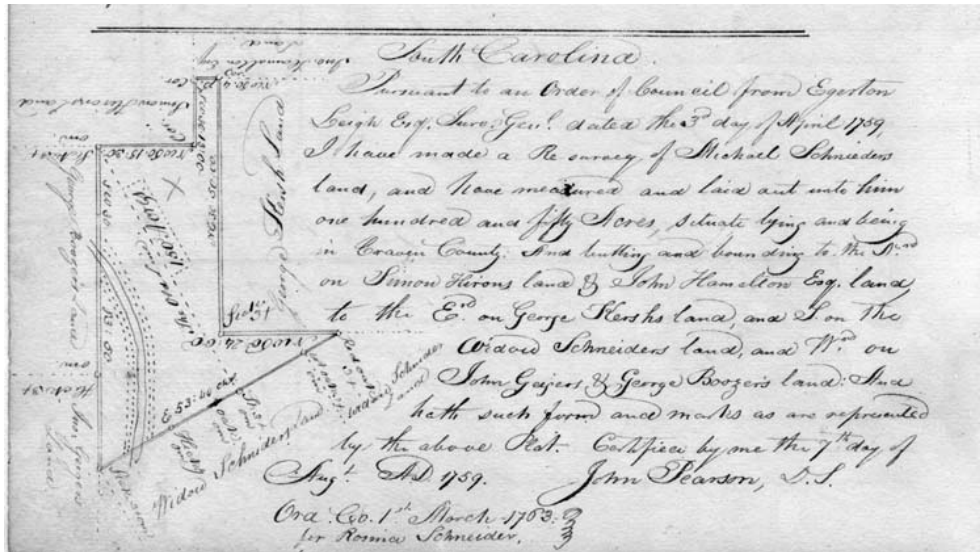 South Carolina.
Pursuant to an Order of Council from Egerton
Leigh Esq. Surv. Genl. dated the 3d day of April 1759,
I have made a Re survey of Michael Schnieders
land, and have measured and laid out unto him
one hundred and fifty Acres, situate lying and being
in Craven County. And butting and bounding to the Nrd
on Simon Hirons land & John Hamelton Esq. land,
to the Erd on George Hershs land, and S. on the
Widow Schneiders land, and Wrd on
John Geigers, & George Boozers land: And
hath such form and marks as are represented
by the above Plat. Certified by me the 7th day of
Augt. AD. 1759. John Pearson, D. S.
Ord. Co. 1st March 1763:
for Rosina Schneider.
Jno. Hamelton Esq.
Land
Simon Hirons land
George Hershs land
George Boozers Land
Jno. Geigers
Land
150
Widow Schneiders land
Widow Schneider
Land